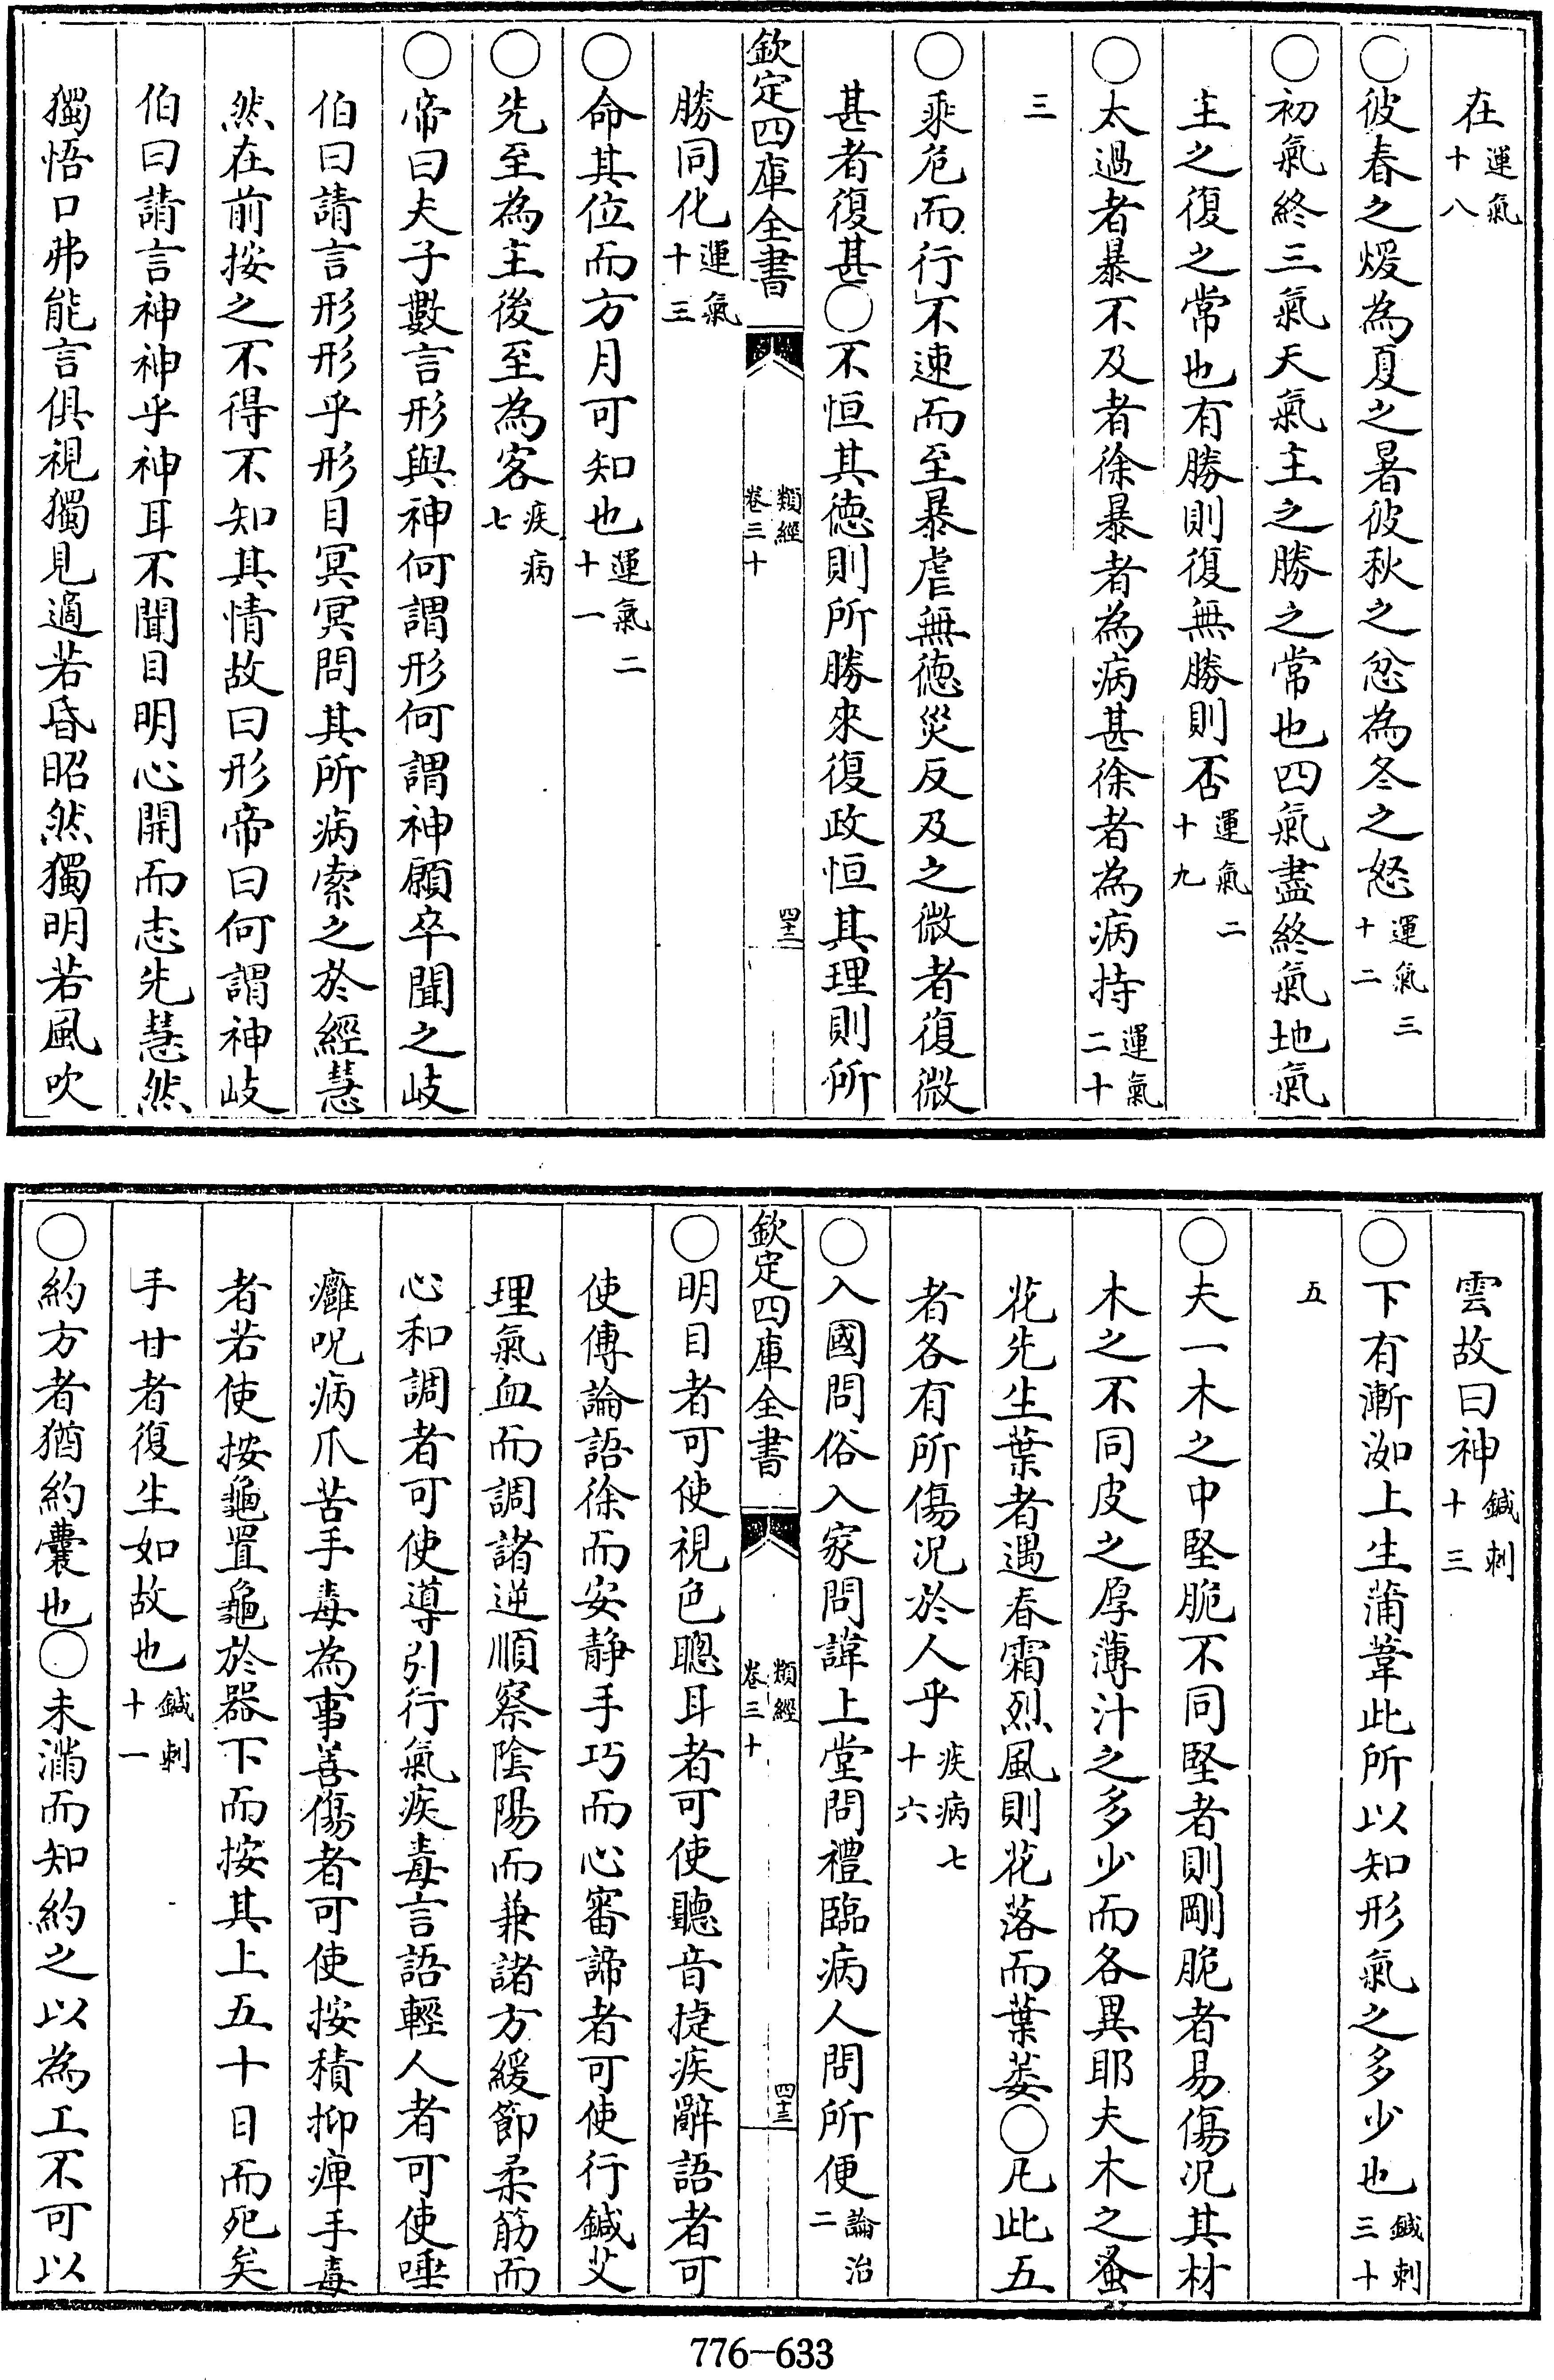 在運氣十八
○彼春之煖為夏之暑彼秋之忿為冬之怒運氣三十二
○初氣終三氣天氣主之勝之常也四氣盡終氣地氣
主之復之常也有勝則復無勝則否運氣二十九
○太過者暴不及者徐暴者為病甚徐者為病持運氣二十
三
○乘危而行不速而至暴虐無德災反及之微者復微
甚者復甚○不恒其德則所勝來復政恒其理則所
欽定四庫全書 類經卷三十 四十二
勝同化運氣十三
○命其位而方月可知也運氣二十一
○先至為主後至為客疾病七
○帝曰夫子數言形與神何謂形何謂神願卒聞之岐
伯曰請言形形乎形目冥冥問其所病索之於經慧
然在前按之不得不知其情故曰形帝曰何謂神岐
伯曰請言神神乎神耳不聞目明心開而志先慧然
獨悟口弗能言俱視獨見適若昏昭然獨明若風吹
雲故曰神鍼刺十三
○下有漸洳上生蒲葦此所以知形氣之多少也鍼刺三十
五
○夫一木之中堅脆不同堅者則剛脆者易傷况其材
木之不同皮之厚薄汁之多少而各異耶夫木之蚤
花先生葉者遇春霜烈風則花落而葉萎○凡此五
者各有所傷况於人乎疾病七十六
○入國問俗入家問諱上堂問禮臨病人問所便論治二
欽定四庫全書 類經卷三十 四十三
○明目者可使視色聰耳者可使聽音捷疾辭語者可
使傳論語徐而安靜手巧而心審諦者可使行鍼艾
理氣血而調諸逆順察陰陽而兼諸方緩節柔筋而
心和調者可使導引行氣疾毒言語輕人者可使唾
癰呪病爪苦手毒為事善傷者可使按積抑痺手毒
者若使按龜置龜於器下而按其上五十日而死矣
手甘者復生如故也鍼刺十一
○約方者猶約囊也○未滿而知約之以為工不可以
776-633